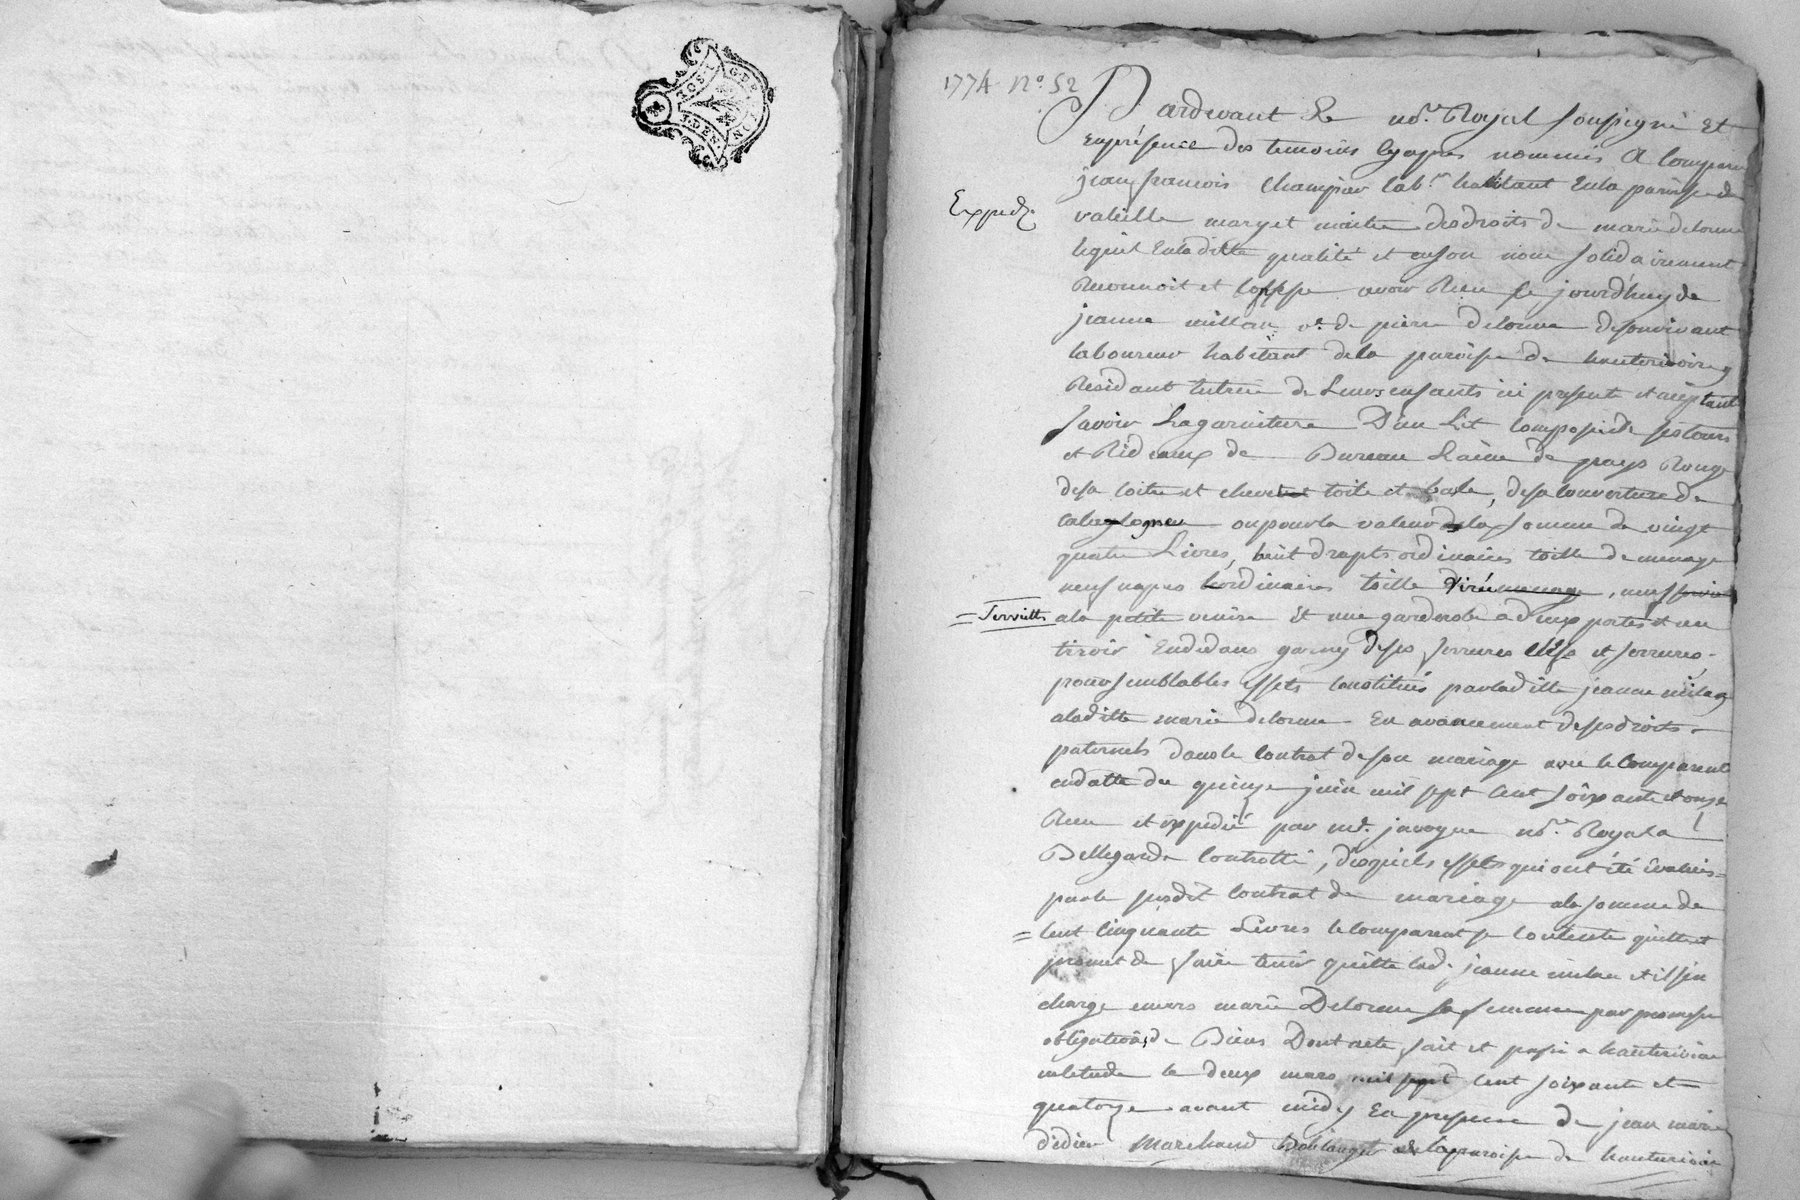 1774 N.o 52
Pardevant Le no.re Royal soussigné Et
Enprésence des temoins cyapres nommés A Comparu
jean françois champiar lab.r habitant Enla paroisse de
valeille mary et maitre desdroits de marie delorme
lequel Enladitte qualité et enson nom solidairement
Reconnoit et Confesse avoir Recu ce jourd'huy de
Expedié
jeanne millan v.e de pierre delorme desonvivant
laboureur habitant dela paroisse de hauterivoire y
Residant tutrice de Leurs enfants ici presente et acceptant
savoir La garniture D'un Lit Composée de ses tours
et Rideaux de Bureau Laine de pays Rouge
desa coitre et chevet toite et bale, desa Couverture de
oupour la valeur dela somme de vingt
quatre Livres, huit drapts ordinaires toille de menage
neuf napes hordinaires toille, neuf
= Serviettes ala petite venise Et une garderobe a deux portes et un
tiroir Endedans garny deses ferrures clefs et serrures.
pour semblables effets Constitués parladitte jeanne milan
aladitte marie delorme En avancement desesdroits
paternels dans le Contrat deson mariage avec le Comparant
endatte du quinze juin mil sept Cent soixante et onze
Recu et expedié par m.e javogue no.re Royal a
Bellegarde Controllé, desquels effets qui ont été évalués
parle susdit Contrat de mariage ala somme de
= Cent Cinquante Livres le Comparant se Contente quitte et
promet de faire tenir quitte lad. jeanne milan et il sen
charge envers marie Delorme sa femme par promesse
obligation de Biens Dont acte fait et passé a hauterivoire
estude le deux mars mil sept Cent soixante et
quatorze avant midy En presence de jean marie
didier Marchand Boulanger de la paroisse de hauterivoire